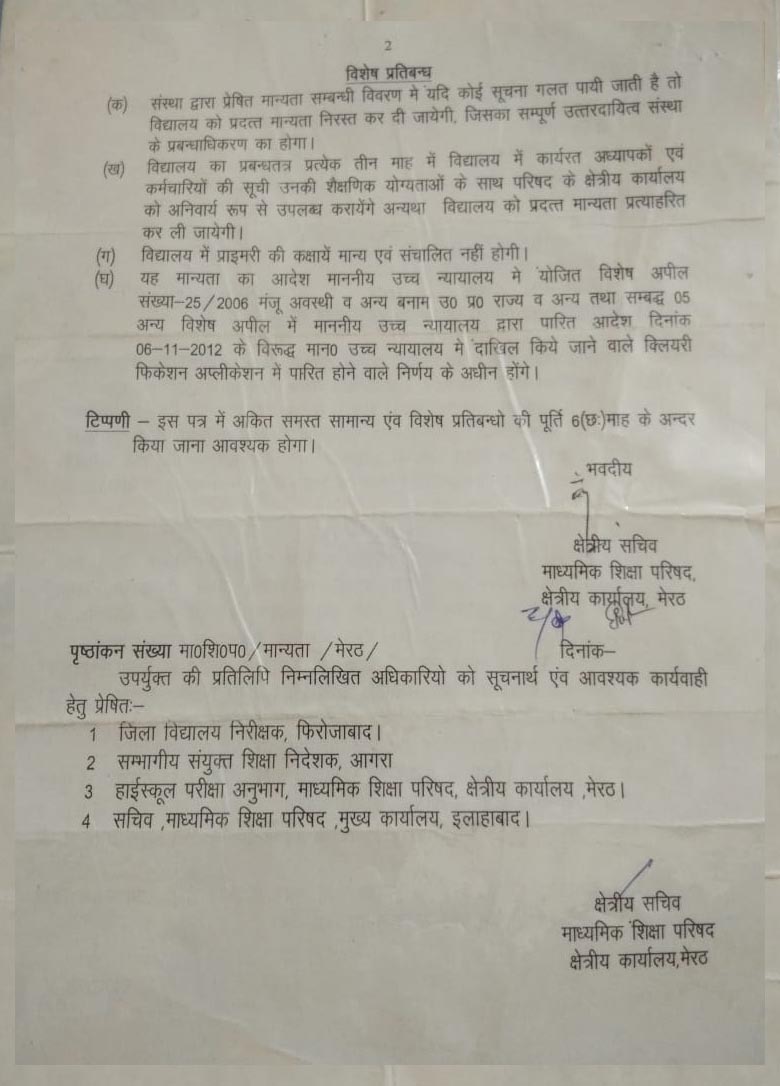 2
विशेष प्रतिबन्ध
(क) संस्था द्वारा प्रेषित मान्यता सम्बन्धी विवरण मे यदि कोई सूचना गलत पायी जाती है तो
विद्यालय को प्रदत्त मान्यता निरस्त कर दी जायेगी, जिसका सम्पूर्ण उत्तरदायित्व संस्था
के प्रबन्धाधिकरण का होगा।
(ख) विद्यालय का प्रबन्धतत्र प्रत्येक तीन माह में विद्यालय में कार्यरत अध्यापकों एवं
कर्मचारियों की सूची उनकी शैक्षणिक योग्यताओं के साथ परिषद के क्षेत्रीय कार्यालय
को अनिवार्य रूप से उपलब्ध करायेंगे अन्यथा विद्यालय को प्रदत्त मान्यता प्रत्याहरित
कर ली जायेगी।
(ग) विद्यालय में प्राइमरी की कक्षायें मान्य एवं संचालित नहीं होगी।
(घ) यह मान्यता का आदेश माननीय उच्च न्यायालय मे योजित विशेष अपील
संख्या–25/2006 मंजू अवस्थी व अन्य बनाम उ0 प्र0 राज्य व अन्य तथा सम्बद्ध 05
अन्य विशेष अपील में माननीय उच्च न्यायालय द्वारा पारित आदेश दिनांक
06–11–2012 के विरूद्ध मान0 उच्च न्यायालय मे दाखिल किये जाने वाले क्लियरी
फिकेशन अप्लीकेशन में पारित होने वाले निर्णय के अधीन होंगे।
टिप्पणी – इस पत्र में अकित समस्त सामान्य एंव विशेष प्रतिबन्धो की पूर्ति 6(छः)माह के अन्दर
किया जाना आवश्यक होगा।
भवदीय
क्षेत्रीय सचिव
माध्यमिक शिक्षा परिषद,
क्षेत्रीय कार्यालय, मेरठ
पृष्ठांकन संख्या मा0शि0प0/मान्यता /मेरठ/ दिनांक–
उपर्युक्त की प्रतिलिपि निम्नलिखित अधिकारियो को सूचनार्थ एंव आवश्यक कार्यवाही
हेतु प्रेषितः–
1 जिला विद्यालय निरीक्षक, फिरोजाबाद।
2 सम्भागीय संयुक्त शिक्षा निदेशक, आगरा
3 हाईस्कूल परीक्षा अनुभाग, माध्यमिक शिक्षा परिषद, क्षेत्रीय कार्यालय ,मेरठ।
4 सचिव ,माध्यमिक शिक्षा परिषद ,मुख्य कार्यालय, इलाहाबाद।
क्षेत्रीय सचिव
माध्यमिक शिक्षा परिषद
क्षेत्रीय कार्यालय,मेरठ